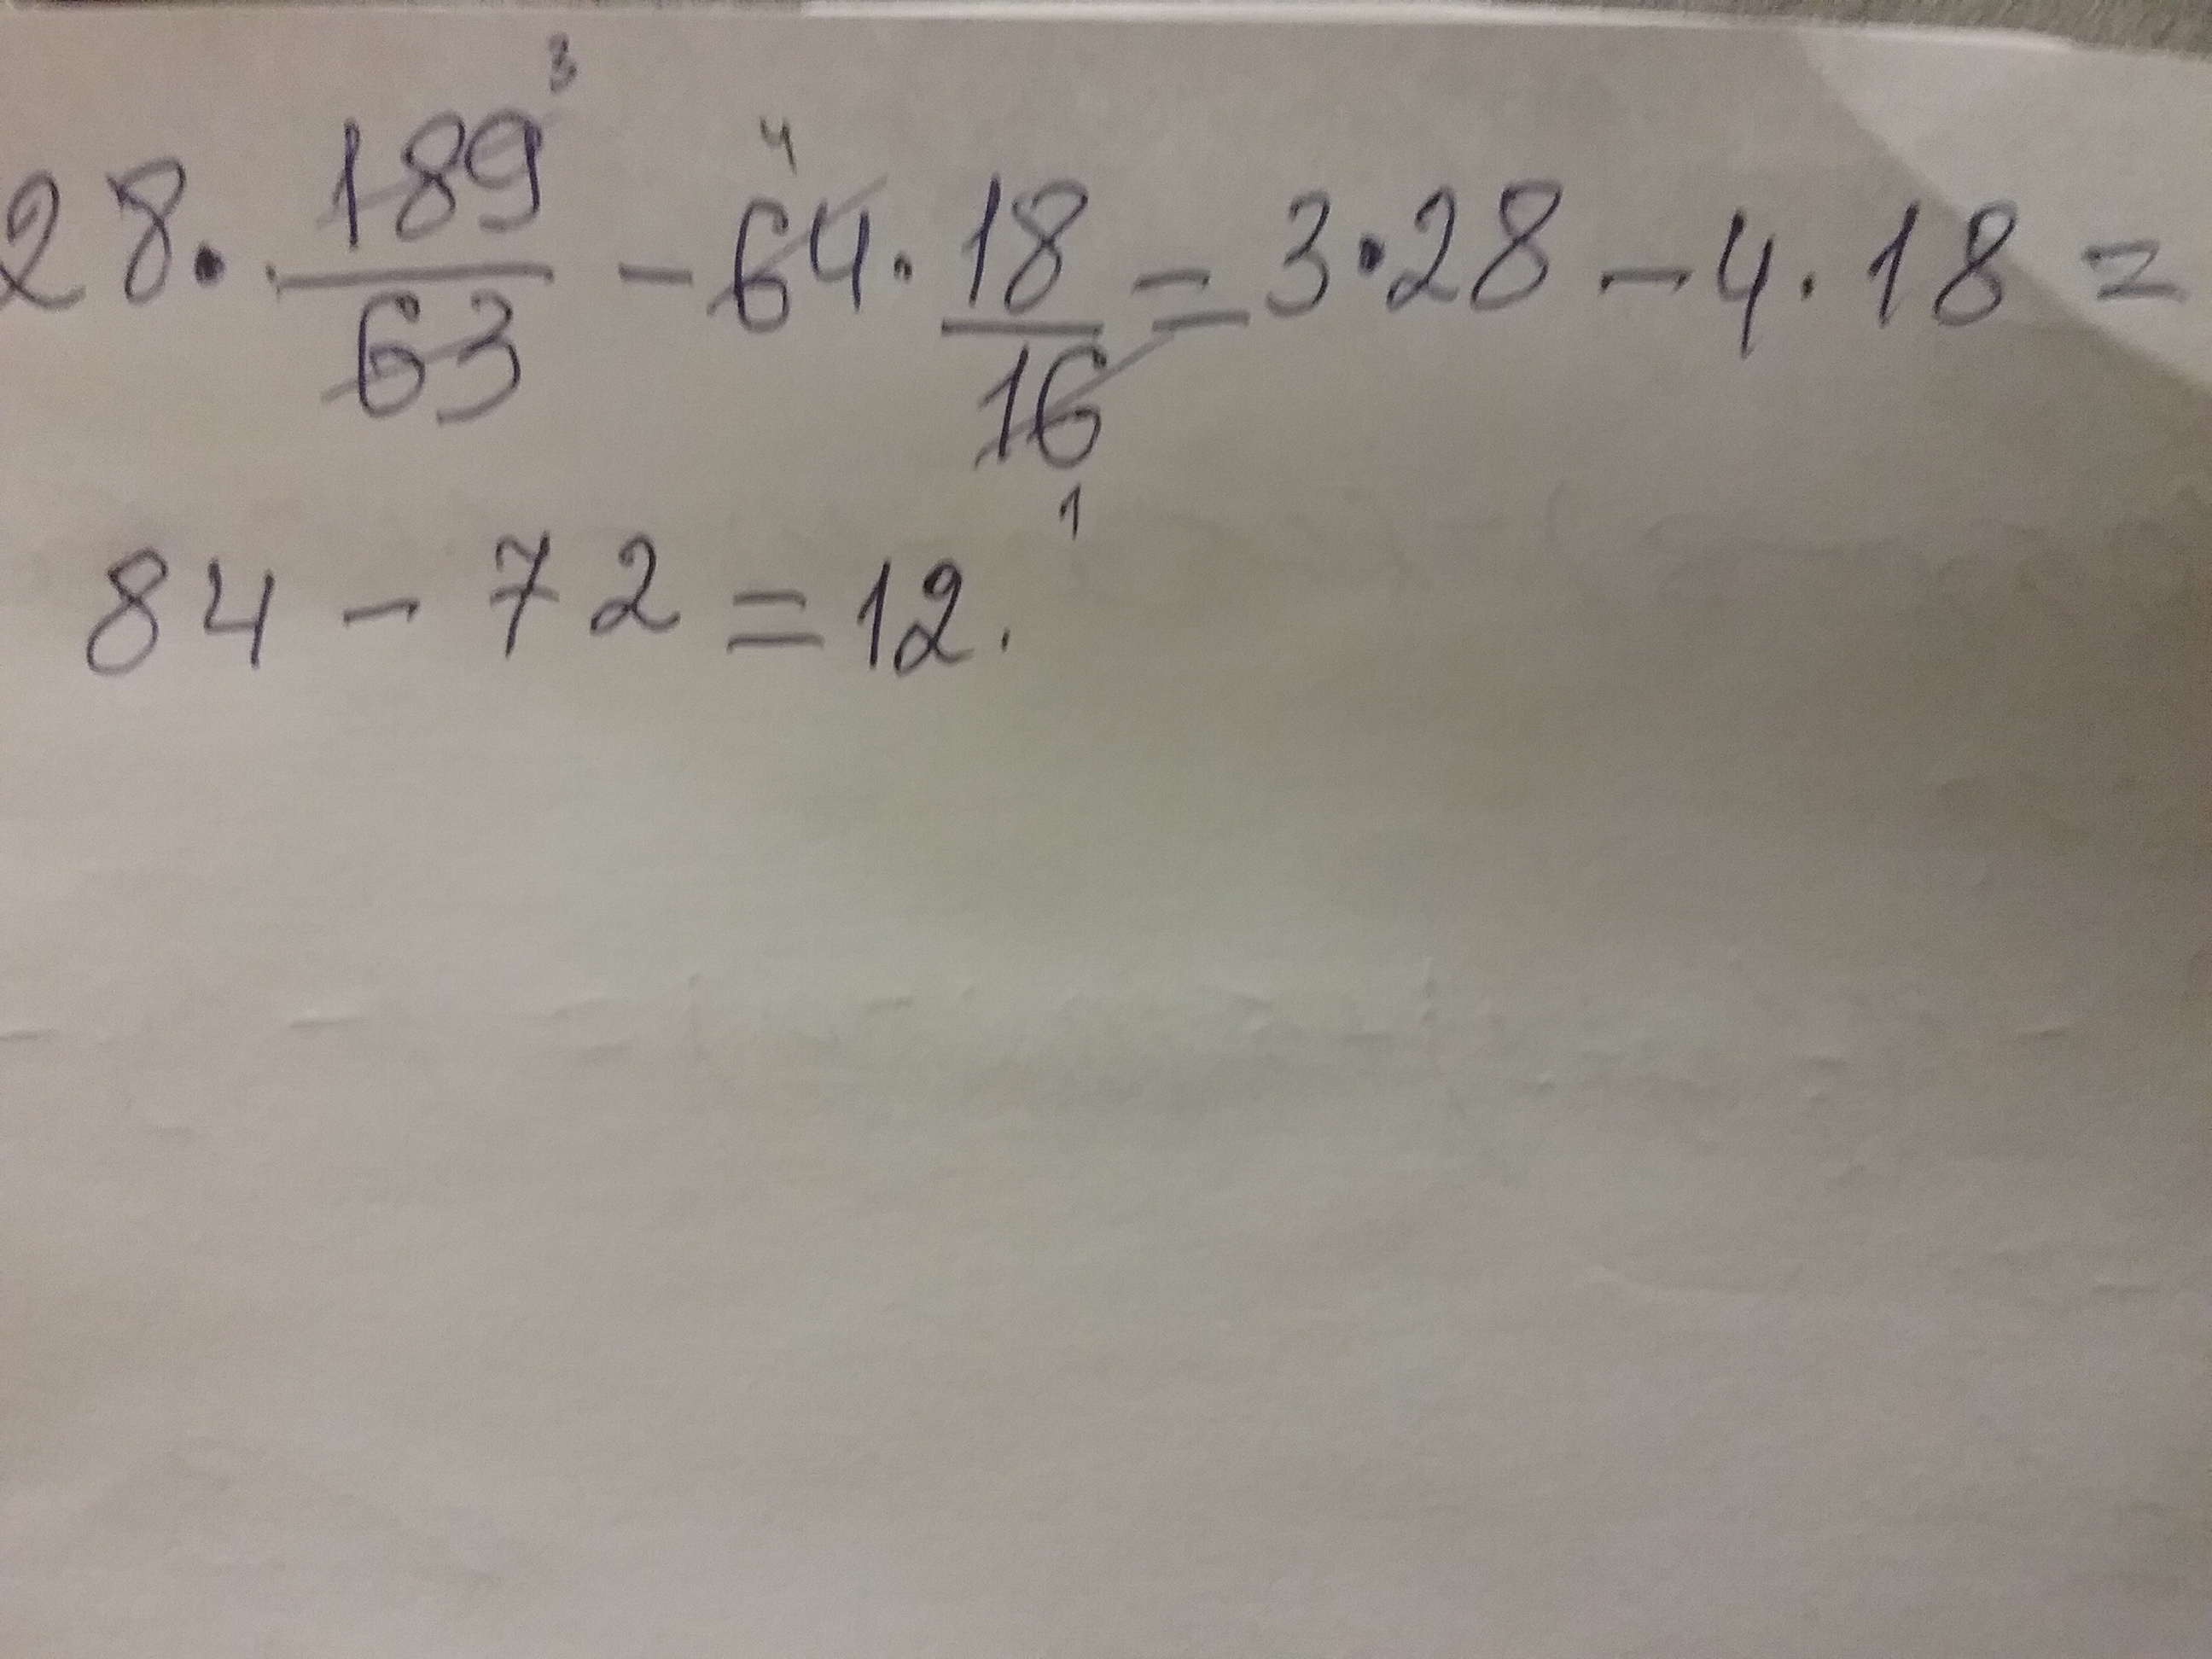 28 · 189³/63 - 64⁴ · 18/16₁ = 3 · 28 - 4 · 18 =
84 - 72 = 12.